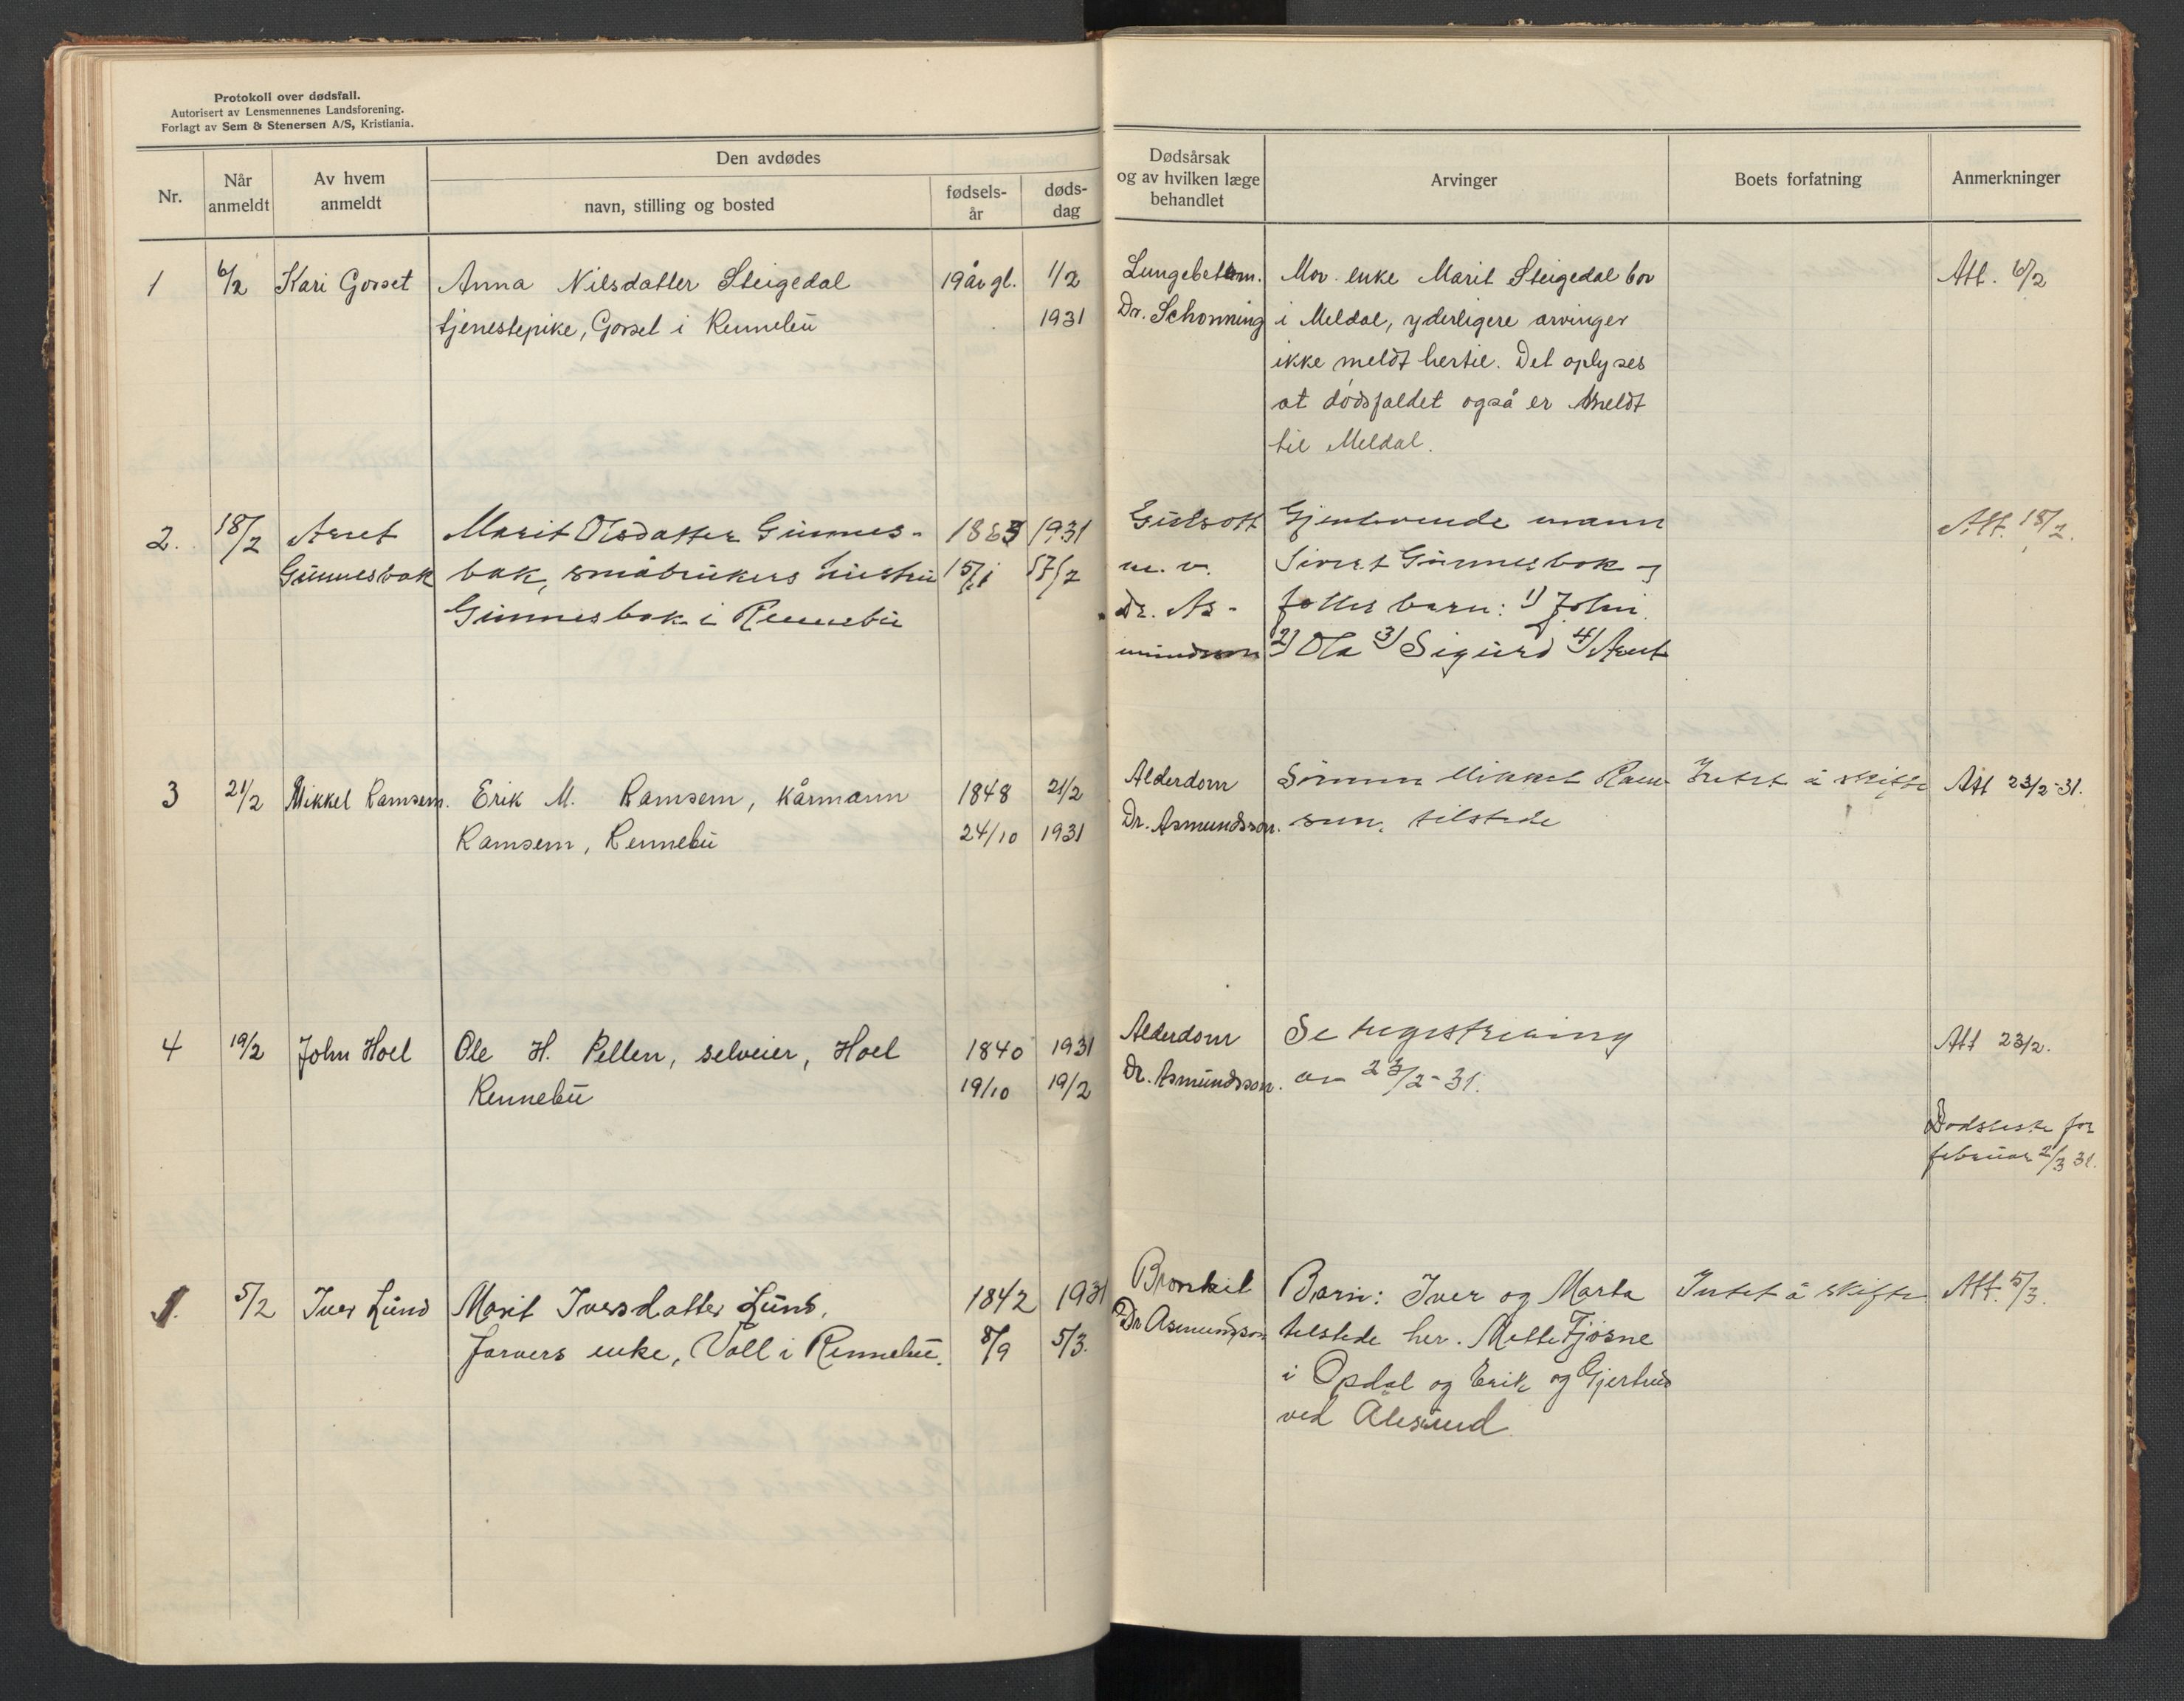 Protokoll over dødsfall.
Autorisert av Lensmennenes Landsforening.
Forlagt av Sem & Stenersen A/S, Kristiania.
Nr.
Når anmeldt
Av hvem anmeldt
Den avdødes
navn, stilling og bosted
fødsels-år
døds-dag
Dødsårsak og av hvilken læge behandlet
Arvinger
Boets forfatning
Anmerkninger
1
6/2
Kari Gorset
Anna Nilsdatter Steigedal
tjenestepike, Gorset i Rennebu
19 år gl.
1/2
1931
Lungebetem.
Dr. Schonning
Mor enke Marit Steigedal bor
i Meldal, yderligere arvinger
ikke meldt hertil. Det oplyses
at dødsfaldet også er meldt
til Meldal.
Att. 6/2
2.
18/2
Arnet
Gunnesbak
Marit Olsdatter Gunnes-
bak, småbrukers hustru
Gunnesbak i Rennebu
1863
15/1
1931
17/2
Gulsott
m. v.
Dr. As-
mundsson
Gjenlevende mann
Sivert Gunnesbak og
felles barn: 1) John
2) Ola 3) Sigurd 4) Arnt
Att. 18/2.
3
21/2
Mikkel Ramsem.
Erik M. Ramsem, kårmann
Ramsem, Rennebu
1848
24/10
21/2
1931
Alderdom
Dr. Asmundsson.
Sønnen Mikkel Ram-
sem, tilstede
Intet å skifte
Att 23/2-31.
4
19/2
John Hoel
Ole H. Pellen, selveier, Hoel
Rennebu
1840
19/10
1931
19/2
Alderdom
Dr. Asmundsson.
Se registrering
av 23/2-31.
Att 23/2.
Dødsliste for
februar 2/3 31.
1.
5/2
Iver Lund
Marit Iversdatter Lund,
farvers enke, Voll i Rennebu.
1842
8/9
1931
5/3.
Bronkit
Dr Asmundsson
Barn: Iver og Marta
tilstede her. Mette Fjøsne
i Opdal og Erik og Gjertrud
ved Ålesund
Intet å skifte
Att. 5/3.